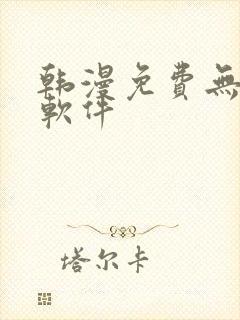 韩漫免费無
軟件
塔尔卡